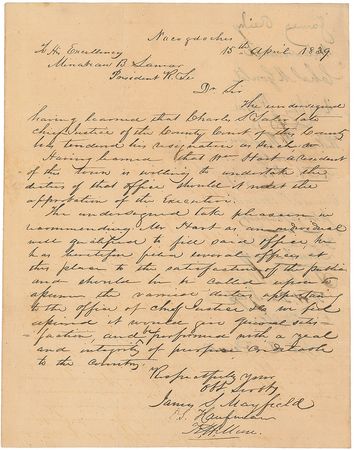 Nacogdoches
15th April 1839
To His Excellency
Mirabeau B Lamar
President R. Te
Dr Sir
The undersigned
having learned that Charles S Taylor late
chief Justice of the County Court of this County
has tendered his resignation as such
Having learned that Wm Hart a resident
of this town is willing to undertake the
duties of that office should it meet the
approbation of the Executive.
The undersigned take pleasure in
recommending Mr Hart as an individual
well qualified to fill said office, he
has heretofore filled several offices at
this place to the satisfaction of the Public
and should he be called upon to
assume the various duties appertaining
to the office of chief Justice
it would give general satis-
faction, and be performed with a zeal
and integrity of purpose
to the country
Respectfully yours
Obt Servts
James S Mayfield
D. S. Kaufman